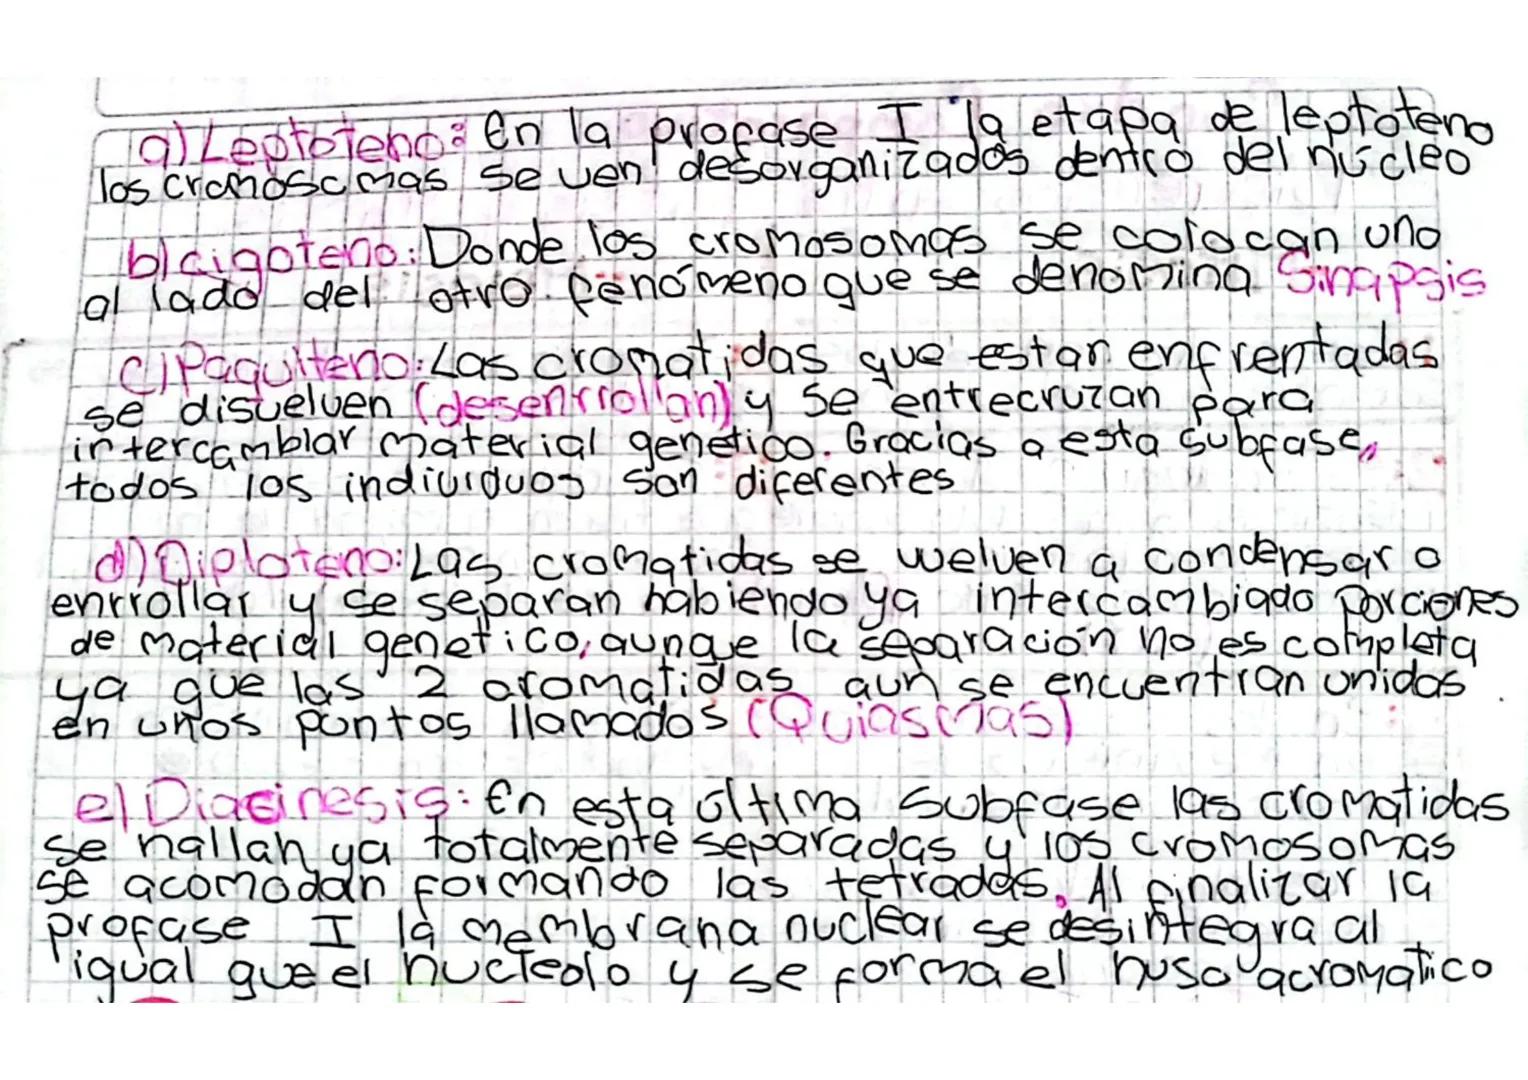 a) Leptoteno: En la profase I la etapa de leptoteno
los cromosomas se ven desorganizados dentro del núcleo
b) cigoteno: Donde los cromosomas se colocan uno
al lado del otro fenómeno que se denomina Sinapsis
c) Paquiteno: Las cromatidas que estan enfrentadas
se disuelven (desenrrollan) y se entrecruzan para
intercambiar material genetico. Gracias a esta subfase,
todos los individuos son diferentes
d) Diploteno: Las cromatidas se welven a condensar o
enrrollar y se separan habiendo ya intercambiado porciones
de material genetico, aunque la separación no es completa
ya que las 2 cromatidas aun se encuentran unidas
en unos puntos llamados (Quiasmas)
e) Diacinesis: En esta última subfase las cromatidas
se hallan ya totalmente separadas y los cromosomas
se acomodan formando las tetradas. Al finalizar la
profase I la membrana nuclear se desintegra al
igual que el nucleolo y se forma el huso acromatico